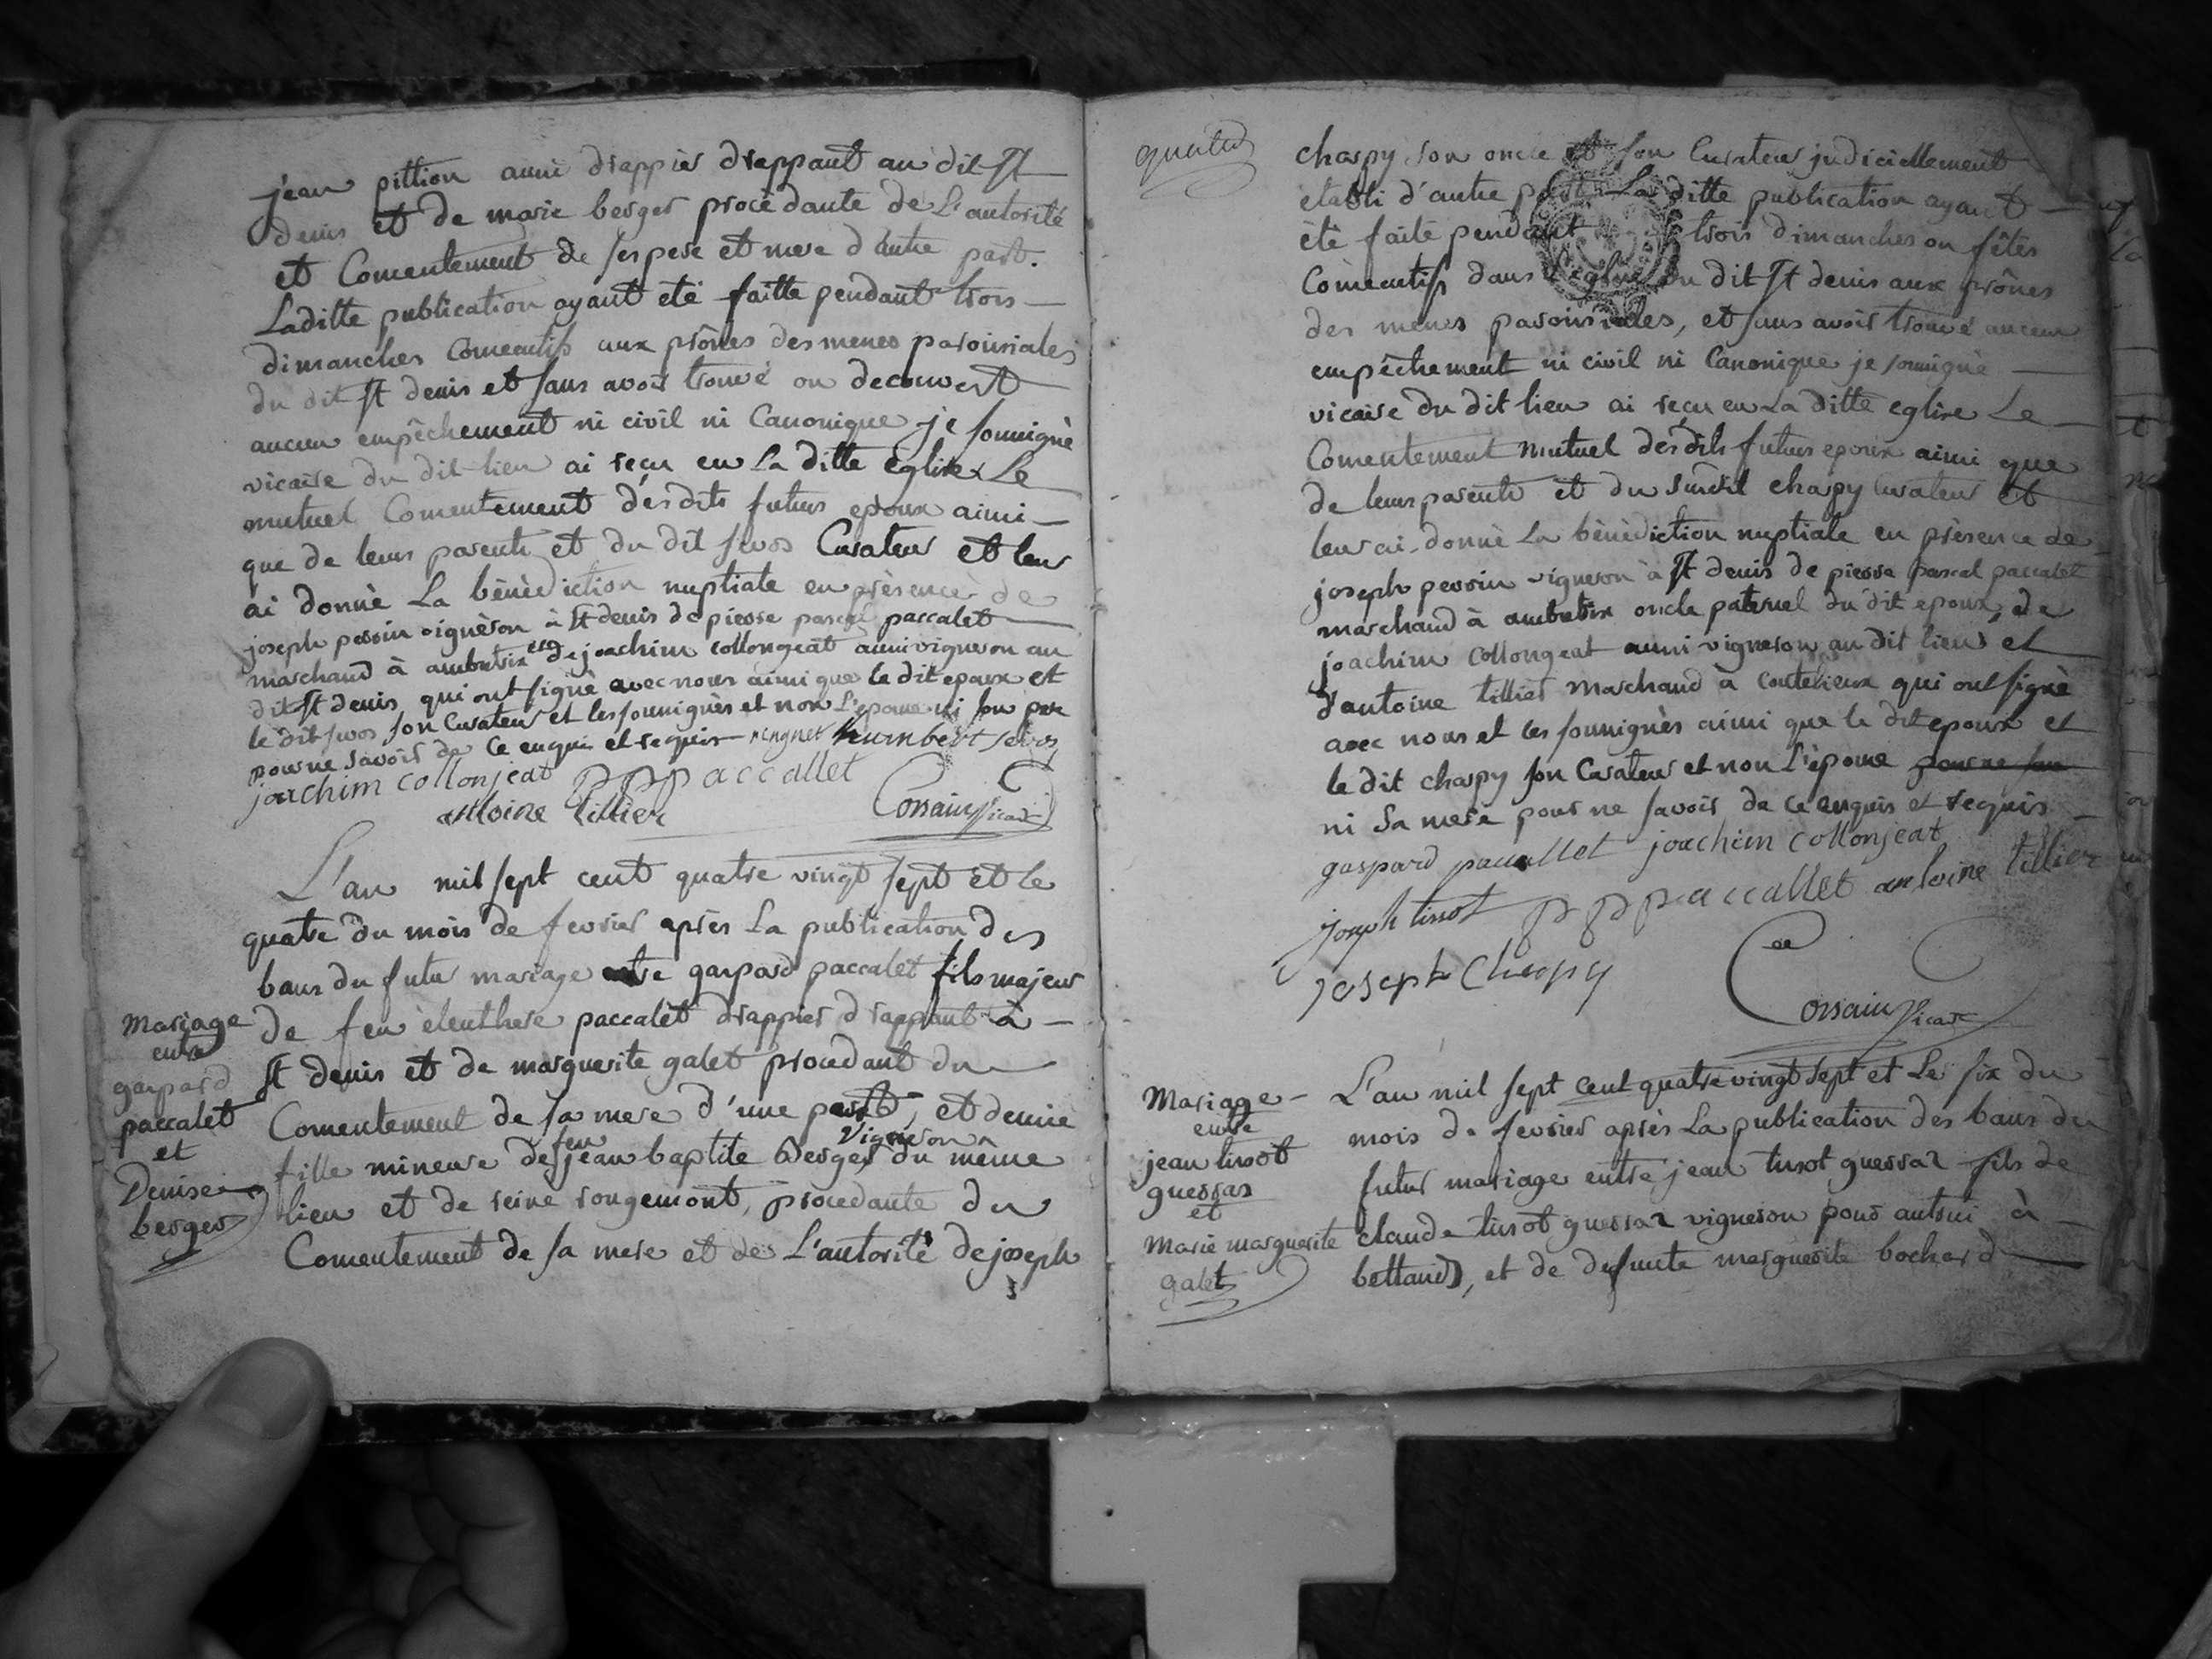 jean pittion aussi drappier drappant au dit st
denis et de marie berger procèdante de L'autorité
et Consentement de ses pere et mere d'autre part.
Laditte publication ayant eté faitte pendant trois
dimanches Consecutifs aux prônes des messes paroissiales
du dit st denis et sans avoir trouvé ou decouvert
aucun empêchement ni civil ni Canonique je soussigné
vicaire du dit lieu ai reçu en La ditte eglise Le
mutuel Consentement desdits futurs epoux ainsi
que de leurs parents et du dit servos Curateur et leur
ai donné La bènèdiction nuptiale en prèsence de
joseph perrin vignèron à st denis de pierre pascal paccalet
marchand à ambutrix et de joachim collongeat aussi vigneron au
dit st denis qui ont signè avec nous ainsi que le dit epoux et
le dit servos son Curateur et les soussignès et non L'epouse ni son pere
pour ne savoir de ce enquis et requis humbert servos
joachim collonjeat PPPaccallet
antoine tillier Corsain vicaire
L'an mil sept cent quatre vingt sept et le
quatre du mois de fevrier après La publication des
bans du futur mariage entre gaspard paccalet fils majeur
Mariage
entre
gaspard
paccalet
et
Denise
berger
de feu èleuthere paccalet drappier drappant à
st denis et de marguerite galet procedant du
Consentement de sa mere d'une part, et denise
fille mineure de feu jean baptite Berger Vigneron du même
lieu et de reine rougemont, procedante du
Consentement de sa mere et de L'autorité de joseph
charpy son oncle et son Curateur judiciellement
établi d'autre part. La ditte publication ayant
èté faite pendant trois dimanches ou fêtes
Consecutifs dans L'eglise du dit st denis aux prônes
des messes paroissiales, et sans avoir trouvé aucun
empêchement ni civil ni Canonique je soussignè
vicaire du dit lieu ai reçu en La ditte eglise Le
Consentement mutuel desdits futurs epoux ainsi que
de leurs parents et du susdit charpy Curateur et
leur ai donnè La bènèdiction nuptiale en prèsence de
joseph perrin vigneron à st denis de pierre pascal paccalet
marchand à ambutrix oncle paternel du dit epoux, de
joachim collongeat aussi vigneron au dit lieu et
d'antoine tillier marchand à couterieux qui ont signè
avec nous et les soussignès ainsi que le dit epoux et
le dit charpy son Curateur et non L'èpouse
ni sa mere pour ne savoir de ce enquis et requis
gaspard paccallet joachim collonjeat
joseph tissot PPPaccallet antoine tillier
joseph Charpy
Corsain vicaire
Mariage
entre
jean tissot
guerraz
et
Marie marguerite
galet
L'an mil sept cent quatre vingt sept et Le six du
mois de fevrier après La publication des bans du
futur mariage entre jean tissot guerraz fils de
claude tissot guerraz vigneron pour autrui à
bettand, et de defunte marguerite bochard